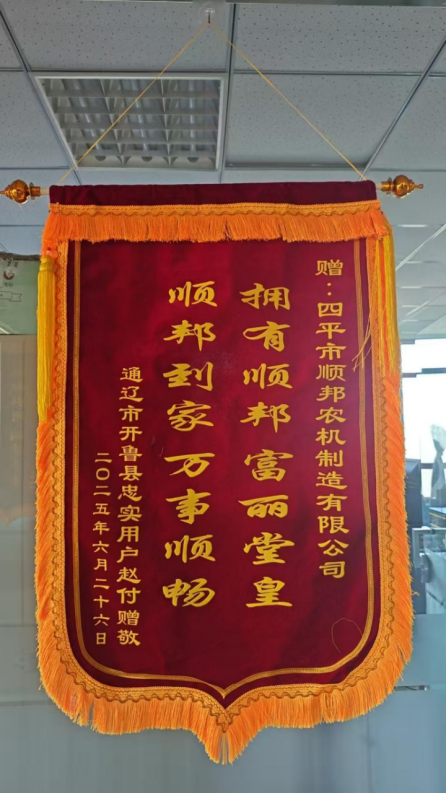 赠：四平市顺邦农机制造有限公司
拥有顺邦富丽堂皇
顺邦到家万事顺畅
通辽市开鲁县忠实用户赵付赠敬
二〇二五年六月二十六日